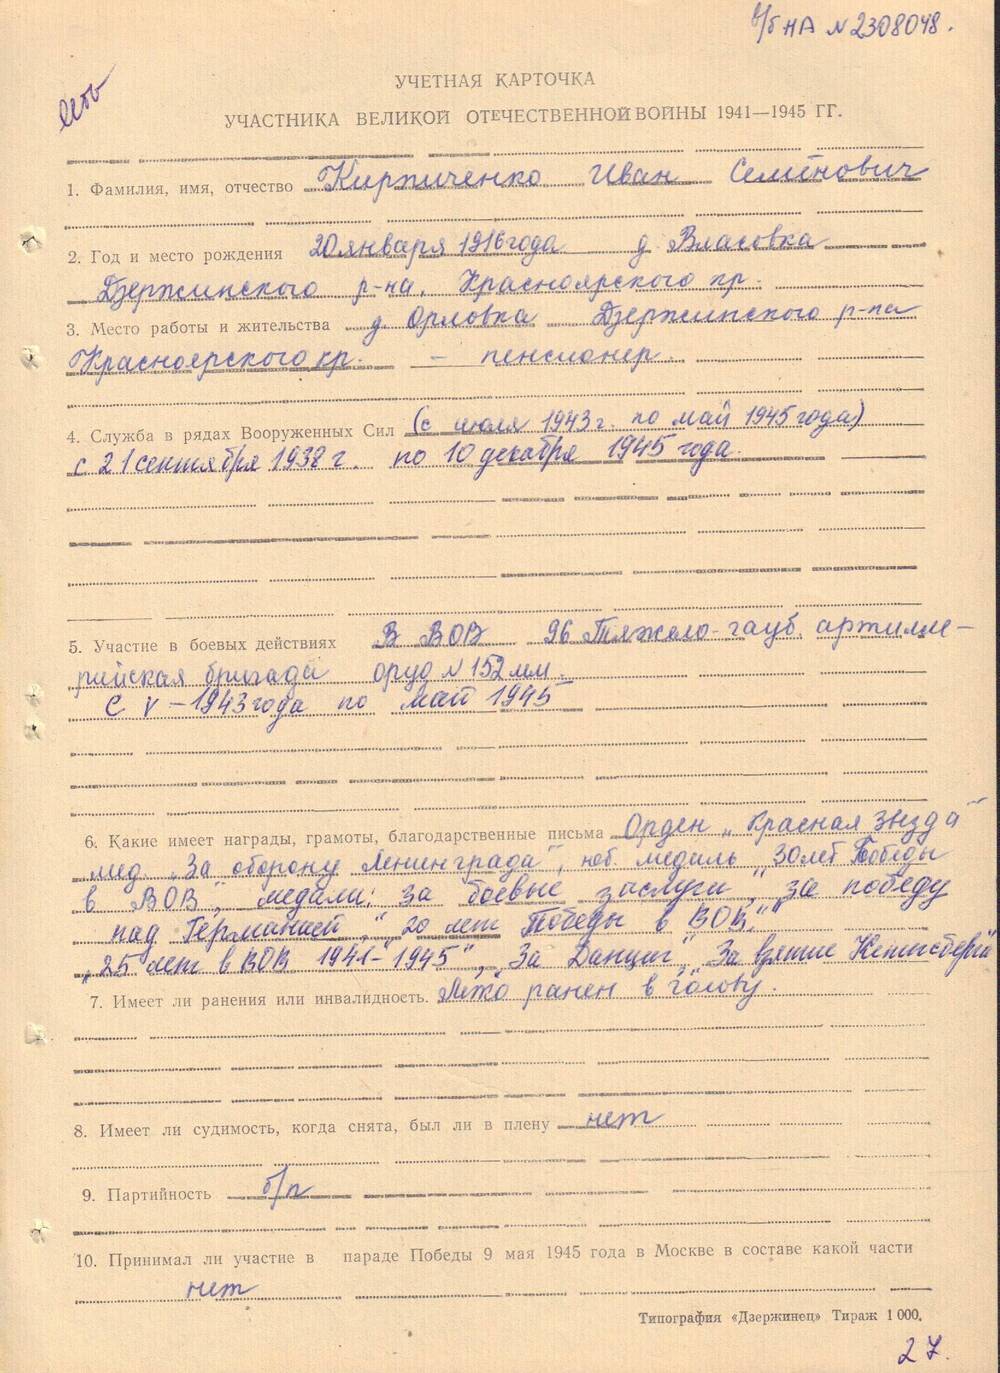 в/б НА № 2308048.
УЧЕТНАЯ КАРТОЧКА
УЧАСТНИКА ВЕЛИКОЙ ОТЕЧЕСТВЕННОЙ ВОЙНЫ 1941—1945 ГГ.
1. Фамилия, имя, отчество Кирпиченко Иван Семёнович
2. Год и место рождения 20 января 1916 года д. Власовка
Дзержинского р-на, Красноярского кр.
3. Место работы и жительства д. Орловка Дзержинского р-на
Красноярского кр. – пенсионер.
4. Служба в рядах Вооруженных Сил (с июля 1943 г. по май 1945 года)
с 21 сентября 1938 г. по 10 декабря 1945 года.
5. Участие в боевых действиях В ВОВ 96 Тяжело-гауб. артилле-
рийская бригада оруд № 152 мм.
С V – 1943 года по май 1945
6. Какие имеет награды, грамоты, благодарственные письма Орден „Красная Звезда"
мед. „За оборону Ленинграда", юб. медаль „30 лет Победы
в ВОВ", медали: за боевые заслуги", „за победу
над Германией", „20 лет Победы в ВОВ."
„25 лет в ВОВ 1941-1945", „За Данциг", За взятие Кенигсберга"
7. Имеет ли ранения или инвалидность. Легко ранен в голову.
8. Имеет ли судимость, когда снята, был ли в плену нет
9. Партийность б/п
10. Принимал ли участие в параде Победы 9 мая 1945 года в Москве в составе какой части
нет
Типография «Дзержинец» Тираж 1 000.
27.